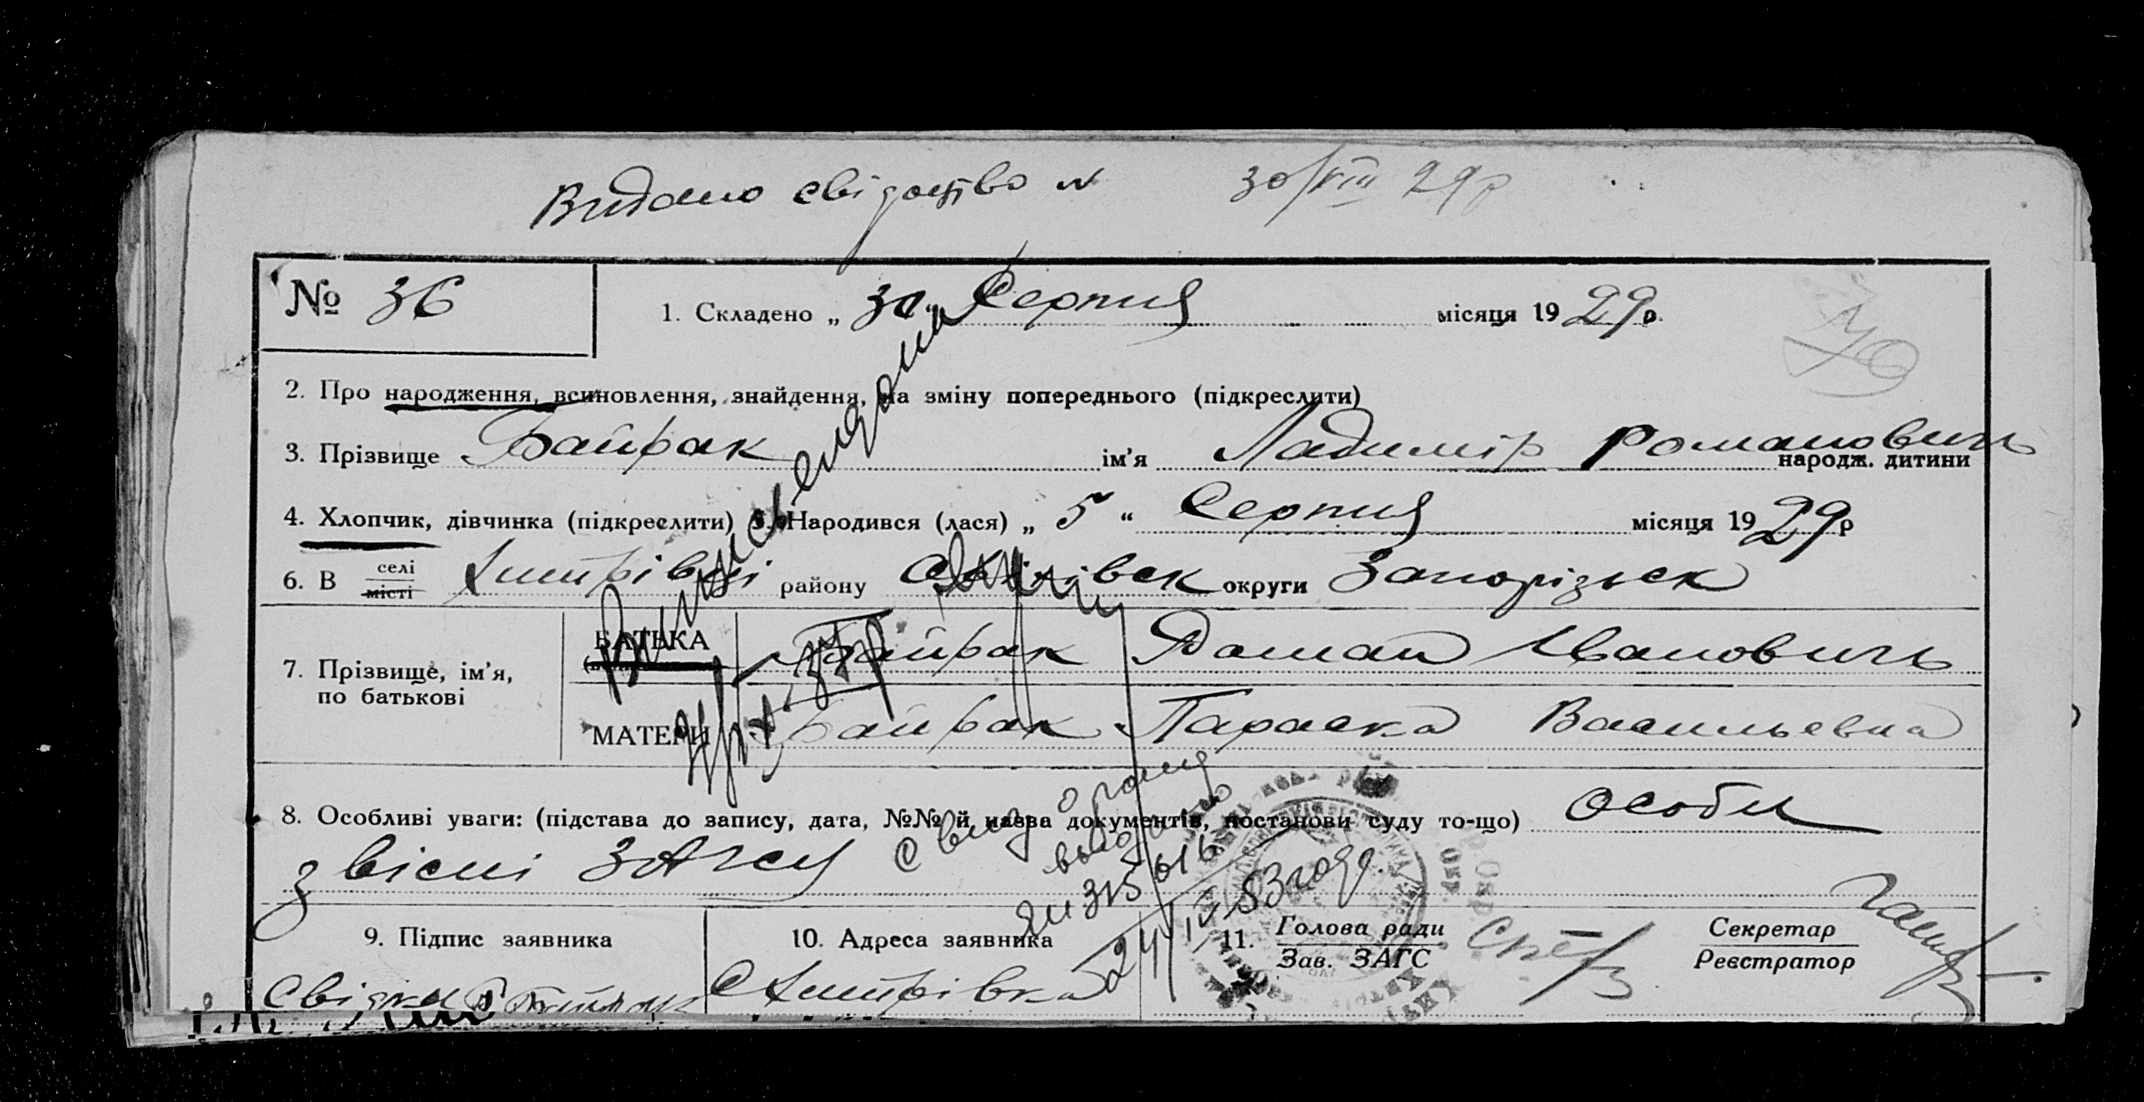 Видано свідоцтво № 30/VIII 29р
№ 36
1. Складено „ 30 “ Серпня місяця 1929р.
2. Про народження, всиновлення, знайдення, на зміну попереднього (підкреслити)
3. Прізвище Байрак ім’я Ладимір Романовичь
народж. дитини
4. Хлопчик, дівчинка (підкреслити) 5. Народився (лася) „ 5 “ Серпня місяця 1929р
6. В селі Дмитрівці району округи Запорізьск
місті
7. Прізвище, ім’я,
по батькові
БАТЬКА Байрак Роман Ивановичь
МАТЕРИ Байрак Параска Васильевна
8. Особливі уваги: (підстава до запису, дата, №№ й назва документів, постанови суду то-що) особи
звісні ЗАГСу
выдано
24/IV-53 года.
9. Підпис заявника
10. Адреса заявника
11. Голова ради
Зав. ЗАГС
Секретар
Реєстратор
Свідки Байрак
С Дмитрівка